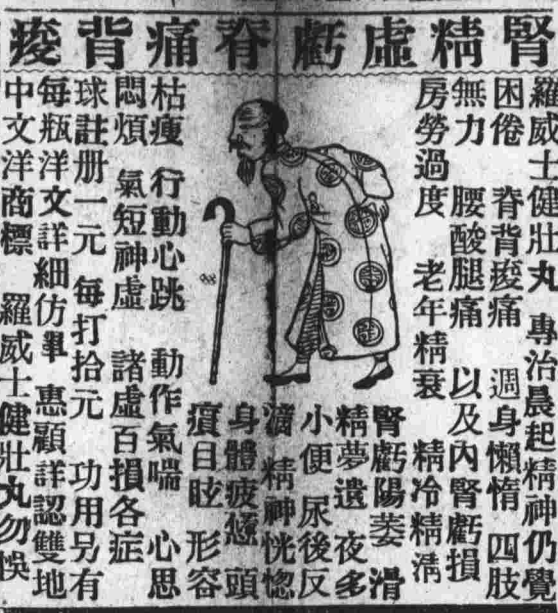 腎精虛虧脊痛背痠
羅威士健壯丸 專治晨起精神仍覺
困倦 脊背痠痛 週身懶惰 四肢
無力 腰酸腿痛 以及內腎虧損
房勞過度 老年精衰 精冷精淸
腎虧陽萎 滑
精夢遺 夜多
小便 尿後反
滴 精神恍惚
身體疲憊 頭
目眩 形容
枯瘦 行動心跳 動作氣喘 心思
悶煩 氣短神虛 諸虛百損各症
球註册一元 每打拾元 功用另有
每瓶洋文詳細仿單 惠顧詳認雙地
中文洋商標 羅威士健壯丸勿悞